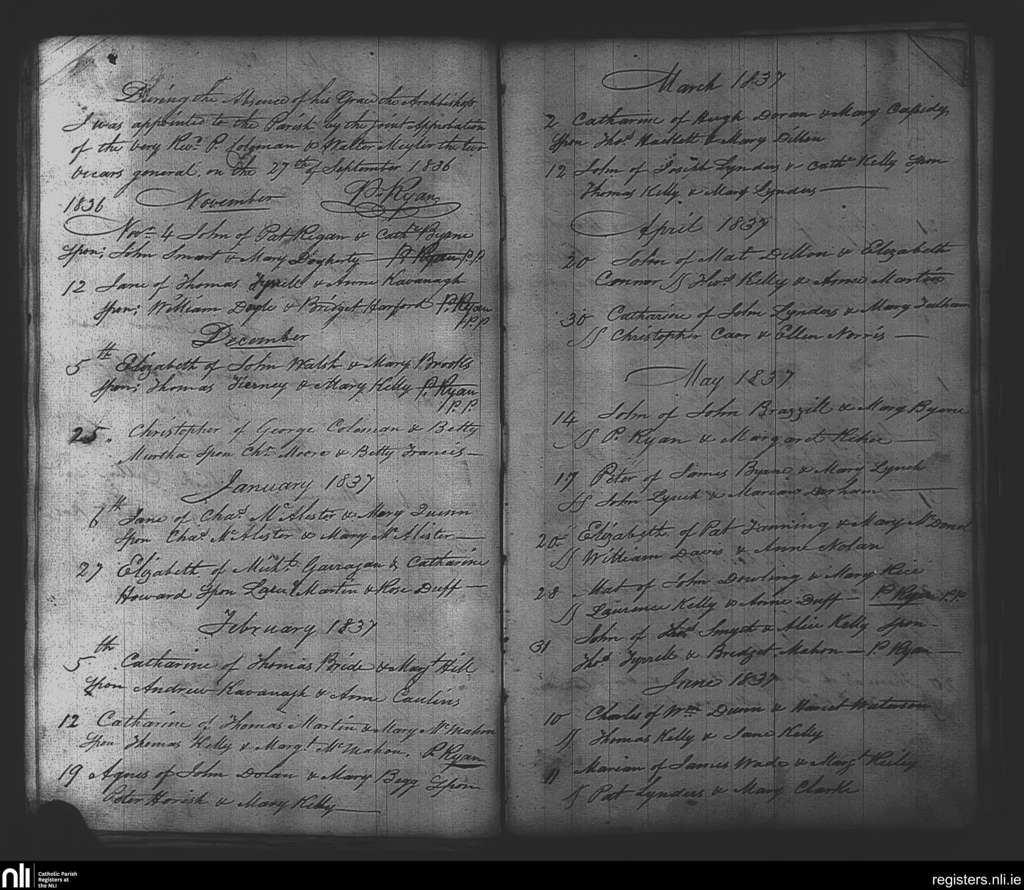 During the Absence of his Grace the Archbishop
I was appointed to the Parish by the joint Approbation
of the Very Revd. P. Coleman & Walter Meyler the two
vicars general, on the 27th of September 1836
1836 November P. Ryan
Novr. 4 John of Pat Regan & Cathe Byrne
Spon; John Smart & Mary Dogherty — P. Ryan P.P
12 Jane of Thomas Tyrrell & Anne Kavanagh
Spon; William Doyle & Bridget Harford P. Ryan
P.P.
December
5th Elizabeth of John Walsh & Mary Brooks
Spon; Thomas Tierney & Mary Kelly P. Ryan
P.P.
25. Christopher of George Coleman & Betty
Murtha Spon Chr. Moore & Betty Francis —
January 1837
6th Jane of Chas. McAlister & Mary Quinn
Spon Chas. McAlister & Mary McAlister —
27 Elizabeth of Michl. Garragan & Catharine
Howard Spon Laur. Martin & Rose Duff —
February 1837
5th Catharine of Thomas Bride & Magt Hill
Spon Andrew Kavanagh & Anne
12 Catharine of Thomas Martin & Mary McMahon
Spon Thomas Kelly & Margt. McMahon. P. Ryan
19 Agnes of John Dolan & Mary Begg Spon
Peter Horish & Mary Kelly —
March 1837
2 Catharine of Hugh Doran & Mary Casidy,
Spon Thos. Hackett & Mary Dillon
12 John of Joseph Lynders & Cathe Kelly Spon
Thomas Kelly & Mary Lynders —
April 1837
20 John of Mat Dillon & Elizabeth
Connor SS Thos. Kelly & Anne Martin
30 Catharine of John Lynders & Mary
SS Christopher Carr & Ellen Norris —
May 1837
14 John of John Brazzill & Mary Byrne
SS P. Ryan & Margaret Kehoe —
17 Peter of James Byrne & Mary Lynch
SS John Lynch & Marian Durham —
20 Elizabeth of Pat Fanning & Mary McDonnel
SS William Davis & Anne Nolan
28 Mat of John Dowling & Mary Rice
SS Laurence Kelly & Anne Duff — P Ryan P.P
31 John of Thos. Smyth & Alice Kelly Spon —
Thos. Tyrrell & Bridget Mahon — P Ryan —
June 1837
10 Charles of Wm Dunn & Harriet Waterson
SS Thomas Kelly & Jane Kelly
11 Marian of James Wade & Magt Heely
SS Pat Lynders & Mary Clarke
nli
Catholic Parish
Registers at
the NLI
registers.nli.ie